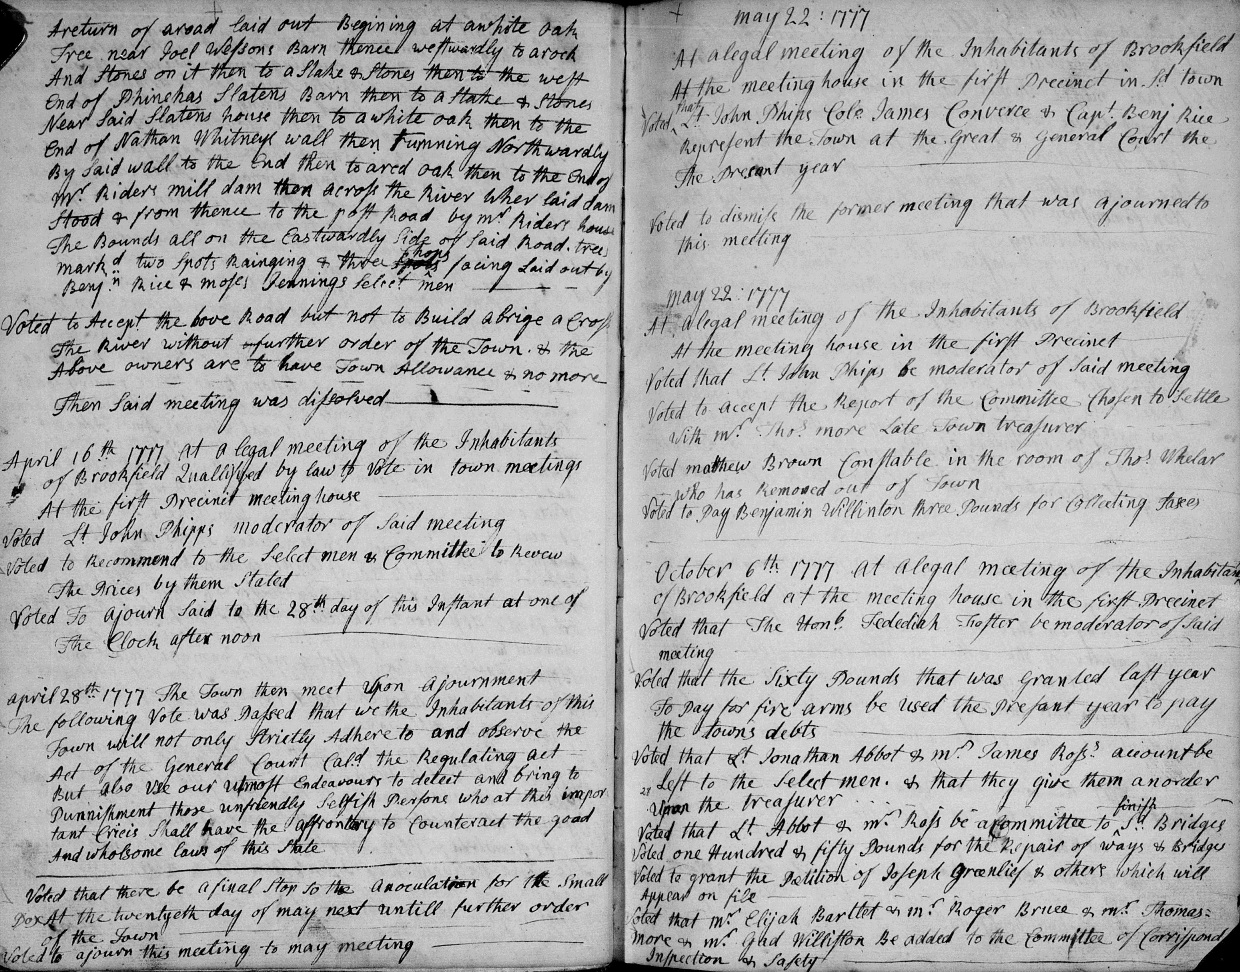 Areturn of aroad laid out Begining at awhite oak
Tree near Joel Wessons Barn thence westwardly to arock
And Stones on it then to a Stake & Stones then to the west
End of Phinehas Slatens Barn then to a Stake & Stones
Near Said Slatens house then to awhite oak then to the
End of Nathan Whitneys wall then Running Northwardly
By Said wall to the End then to ared oak then to the End of
Mr. Riders mill dam then across the River wher laid dam
Stood & from thence to the post Road by mr Riders house
The Bounds all on the Eastwardly Side of Said Road. trees
markd two Spots Rainging & three Chops facing Laid out by
Benjn Rice & moses Jennings Select men
Voted to Accept the bove Road but not to Build abrige a Cross
The River without further order of the Town. & the
Above owners are to have Town Allowance & no more
Then Said meeting was dissolved
April 16th 1777 At a legal meeting of the Inhabitants
of Brookfield Quallifyed by law to Vote in town meetings
At the first Precinct meeting house
Voted Lt John Phipps moderator of Said meeting
Voted to Recommend to the Select men & Committee to Revew
The Prices by them Stated
Voted To Ajourn Said to the 28th day of this Instant at one of
The Clock after noon
april 28th 1777 The Town then meet Upon Ajournment
The following Vote was Passed that we the Inhabitants of this
Town will not only Strictly Adhere to and observe the
Act of the General Court Cald the Regulating act
But also Use our utmost Endeavours to detect and bring to
Punnishment those unfriendly Selfish Persons who at this impor
tant Cricis Shall have the affrontery to Counteract the good
And wholsome laws of this State
Voted that there be a final Stop to the Anoculation for the Small
Pox At the twentyeth day of may next untill further order
of the Town
Voted to ajourn this meeting to may meeting
may 22: 1777
At alegal meeting of the Inhabitants of Brookfield
At the meeting house in the first Precinct in Sd town
Voted that Lt John Phips Cole James Converce & Capt. Benj Rice
Represent the Town at the Great & General Court the
The Presant year
Voted to dismiss the former meeting that was ajourned to
this meeting
may 22: 1777
At alegal meeting of the Inhabitants of Brookfield
At the meeting house in the first Precinct
Voted that Lt. John Phips be moderator of Said meeting
Voted to accept the Report of the Committee Chosen to Settle
With mr. Thos more Late Town treasurer
Voted matthew Brown Constable in the room of Thos Whelar
who has Removed out of Town
Voted to Pay Benjamin Willinton three Pounds for Collecting taxes
October 6th 1777 At Alegal meeting of the Inhabitan
of Brookfield at the meeting house in the first Precinct
Voted that The Honb. Jedediah Foster be moderator of Said
meeting
Voted that the Sixty Pounds that was granted last year
To Pay for fire arms be used the Presant year to pay
the towns debts
Voted that Lt Jonathan Abbot & mr. James Ross's acount be
left to the Select men. & that they give them an order
Upon the treasurer
Voted that Lt. Abbot & mr. Ross be a Committee to finish Sd. Bridges
Voted one Hundred & fifty Pounds for the Repair of ways & Bridges
Voted to grant the Petition of Joseph greenlief & others which will
Appear on file
Voted that mr Elijah Bartlet & mr Roger Bruce & mr. Thomas
more & mr. Gad Williston Be added to the Committee of Corrispond
Inspection & Safety